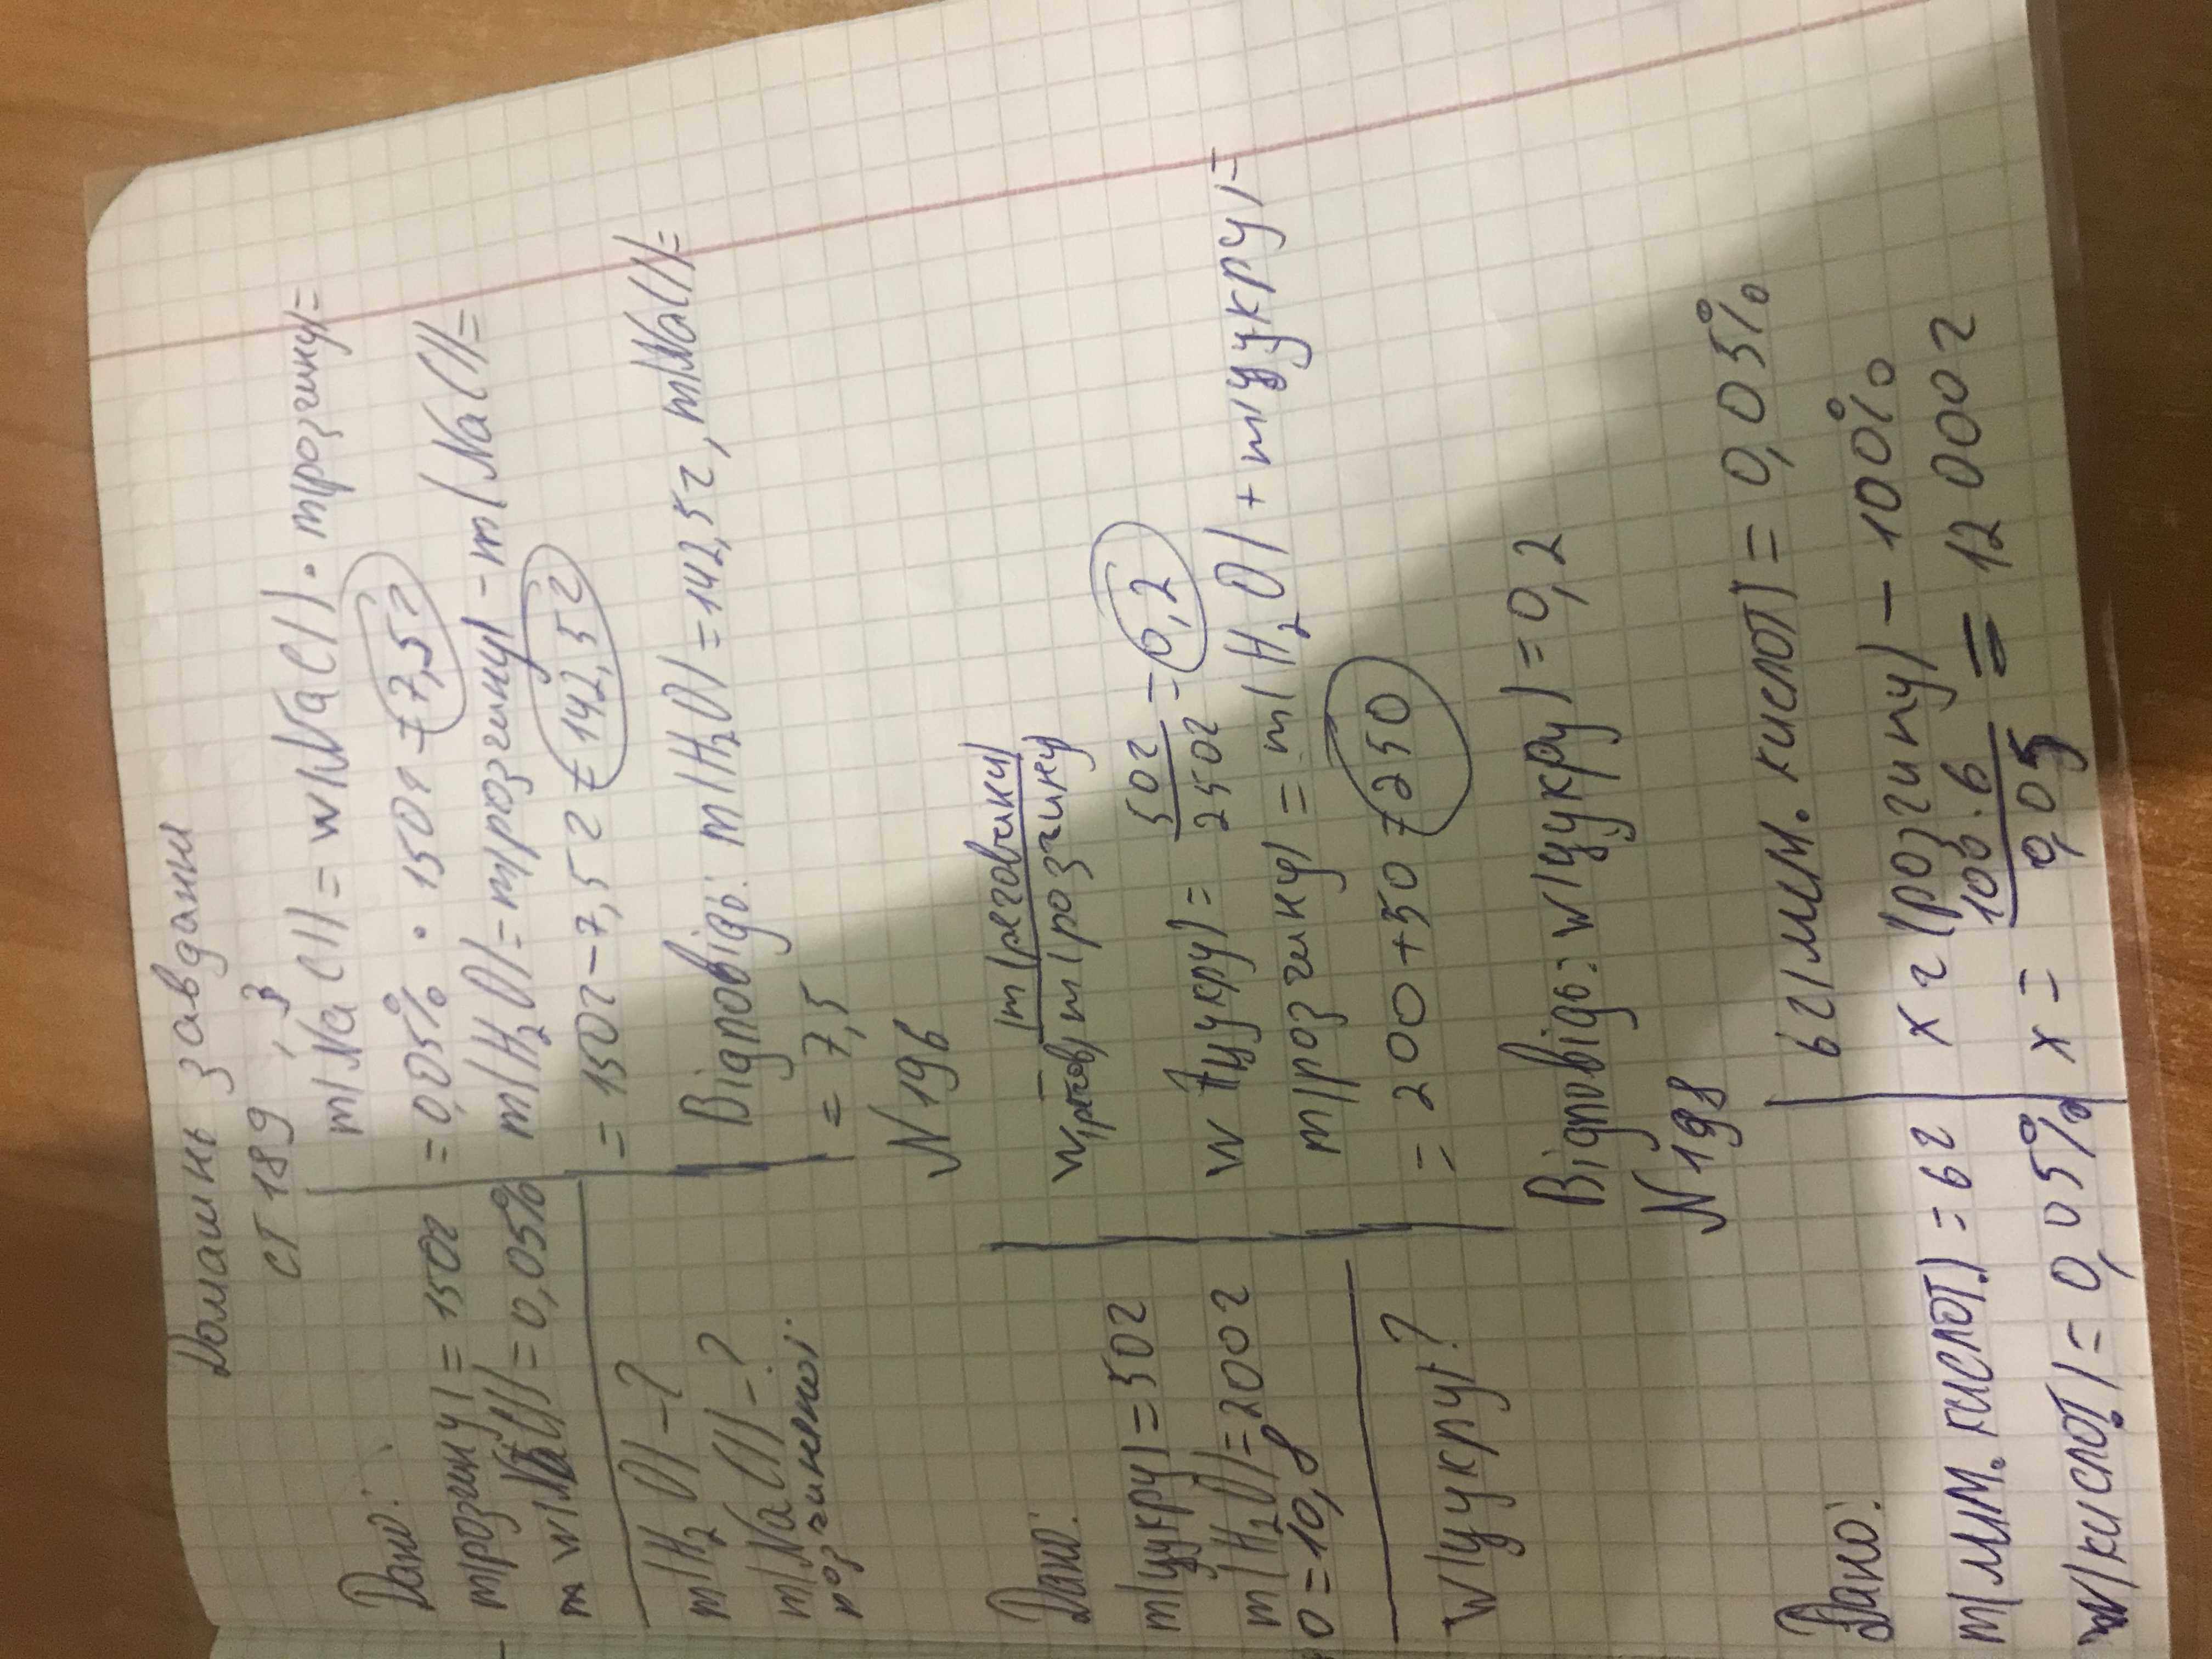 Домашнь завдання
ст 189, 3
Дано:
m(розчину) = 150г
m w(NaCl) = 0,05%
m(H₂O) -?
m(NaCl) -?
m(NaCl) = w(NaCl) · m(розчину) =
= 0,05% · 150г = 7,5г
m(H₂O) = m(розчину) - m(NaCl) =
= 150г - 7,5г = 142,5г
Відповідь: m(H₂O) = 142,5г, m(NaCl) =
= 7,5
N 196
Дано:
m(цукру) = 50г
m(H₂O) = 200г
0 = 10,8
w(цукру)?
w(речов) = m(речовини) / m(розчину)
w (цукру) = 50г / 250г = 0,2
m(розчину) = m(H₂O) + m(цукру) =
= 200 + 50 = 250
Відповідь: w(цукру) = 0,2
N 198
Дано:
m(лим. кислот.) = 6г
w(кислот.) = 0,05%
6г (лим. кислот) = 0,05%
x г (розчину) - 100%
x = 100·6 / 0,05 = 12 000 г